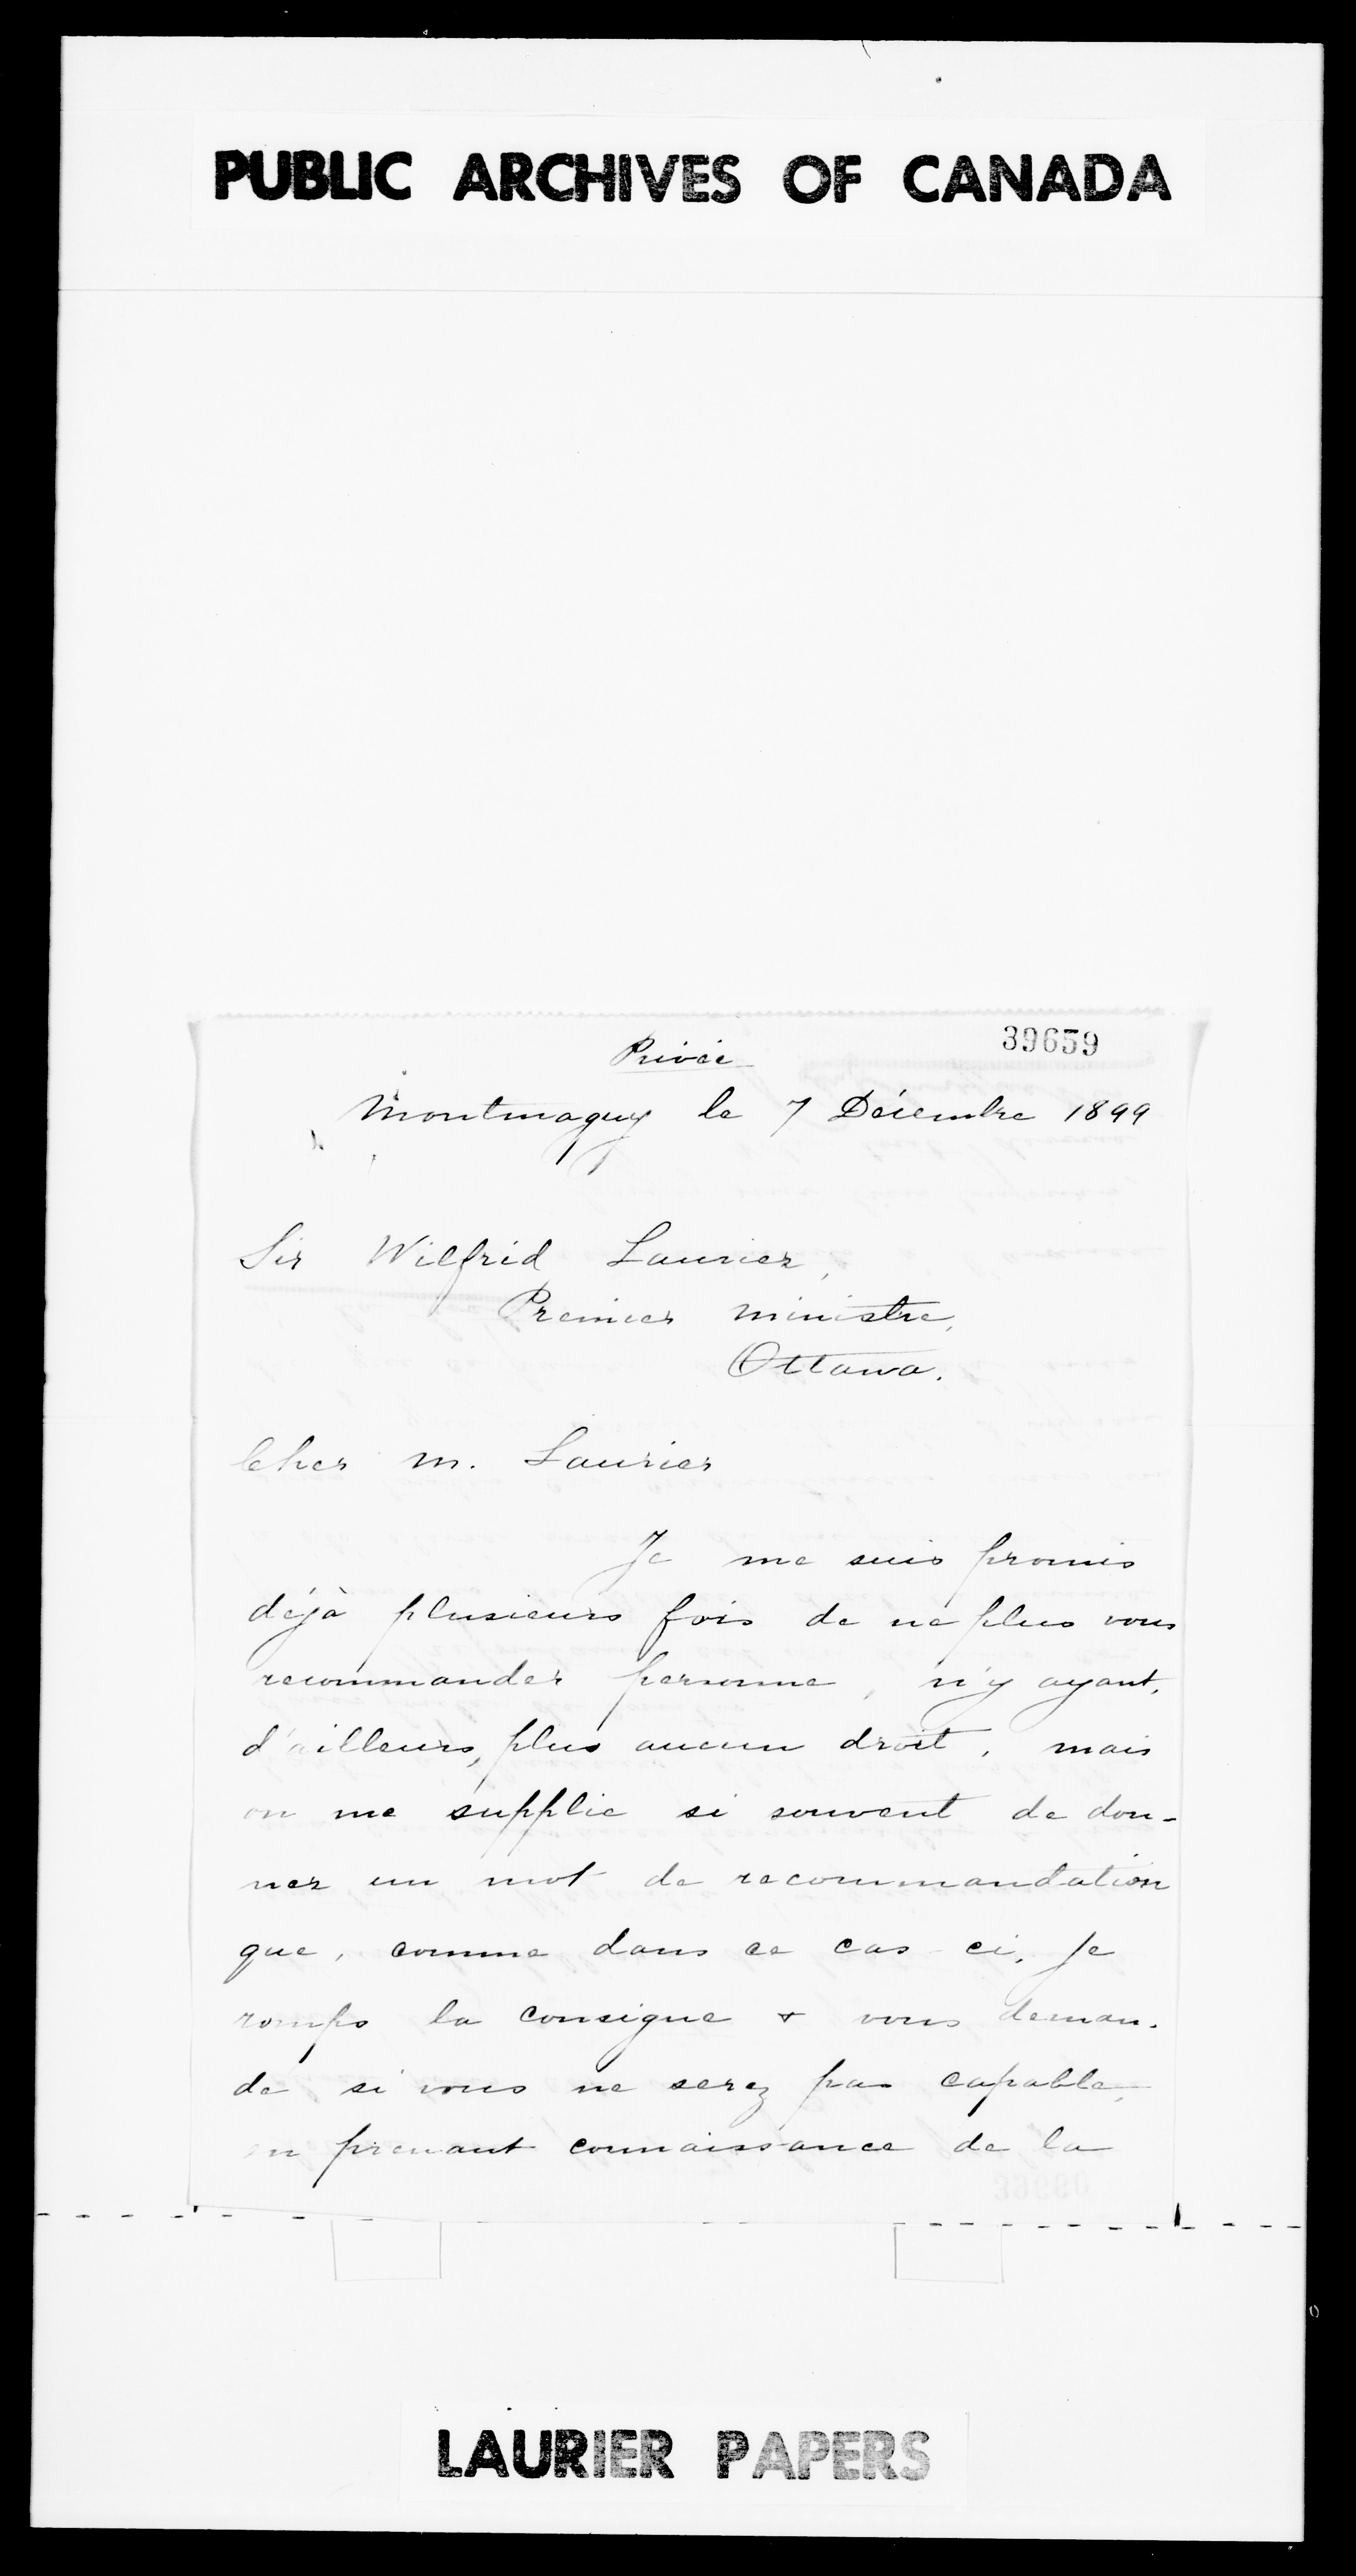 PUBLIC ARCHIVES OF CANADA
39659
Privée
Montmagny le 7 Décembre 1899
Sir Wilfrid Laurier,
Premier ministre,
Ottawa.
Cher M. Laurier
Je me suis promis
déjà plusieurs fois de ne plus vous
recommander personne, n'y ayant,
d'ailleurs, plus aucun droit, mais
on me supplie si souvent de don-
ner un mot de recommandation
que, comme dans ce cas-ci, je
romps la consigne & vous deman-
de si vous ne serez pas capable,
en prenant connaissance de la
39660
LAURIER PAPERS